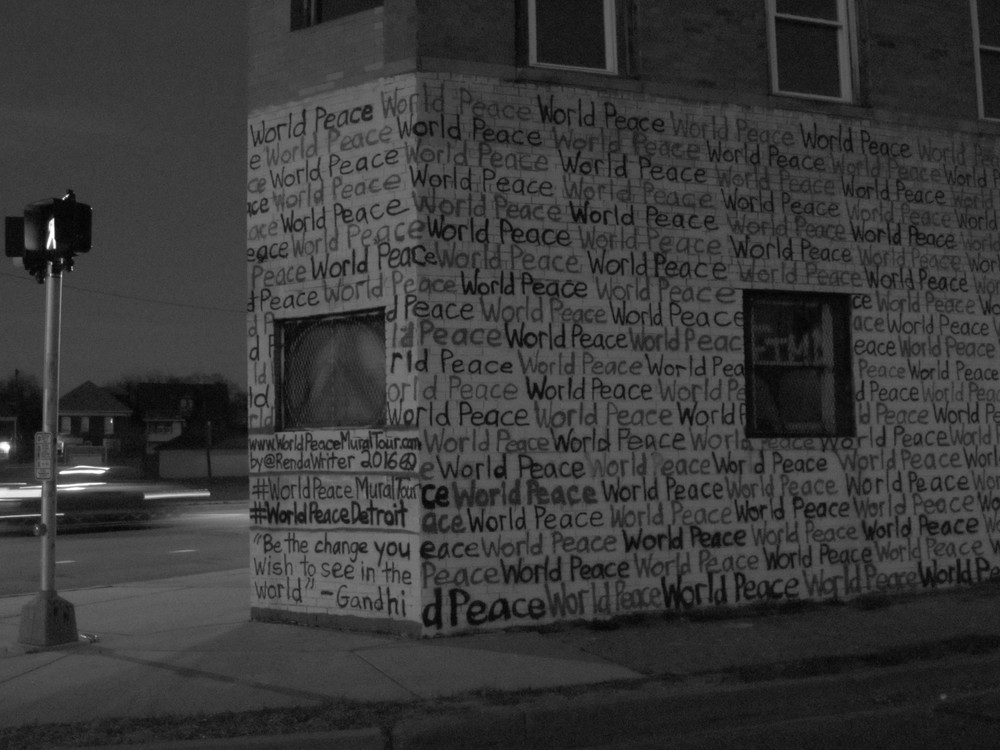 World Peace World Peace World Peace World Peace World Peace World Peace
e World Peace World Peace World Peace World Peace World Peace World P
ce World Peace World Peace World Peace World Peace World Peace World
ace World Peace World Peace World Peace World Peace World Peace
ace World Peace World Peace World Peace World Peace World Peace World
eace World Peace World Peace World Peace World Peace World Peace
Peace World Peace World Peace World Peace World Peace World Peace
d Peace World Peace World Peace World Peace ce World Peace World
d P d Peace World Peace World Peace ace World Peace World
ld rld Peace World Peace World Pea eace World Peace World
ld orld Peace World Peace World P Peace World Peace
rld World Peace World Peace World P d Peace World Peace
World Peace World Peace World Peace World Peace World
e World Peace World Peace World Peace World Peace
ce World Peace World Peace World Peace World Peace
ace World Peace World Peace World Peace World Peace
eace World Peace World Peace World Peace World Peace
Peace World Peace World Peace World Peace World Peace
d Peace World Peace World Peace World Peace World Peace
www.WorldPeaceMuralTour.com
by @RendaWriter 2016
#WorldPeaceMuralTour
#WorldPeaceDetroit
"Be the change you
wish to see in the
world" - Gandhi